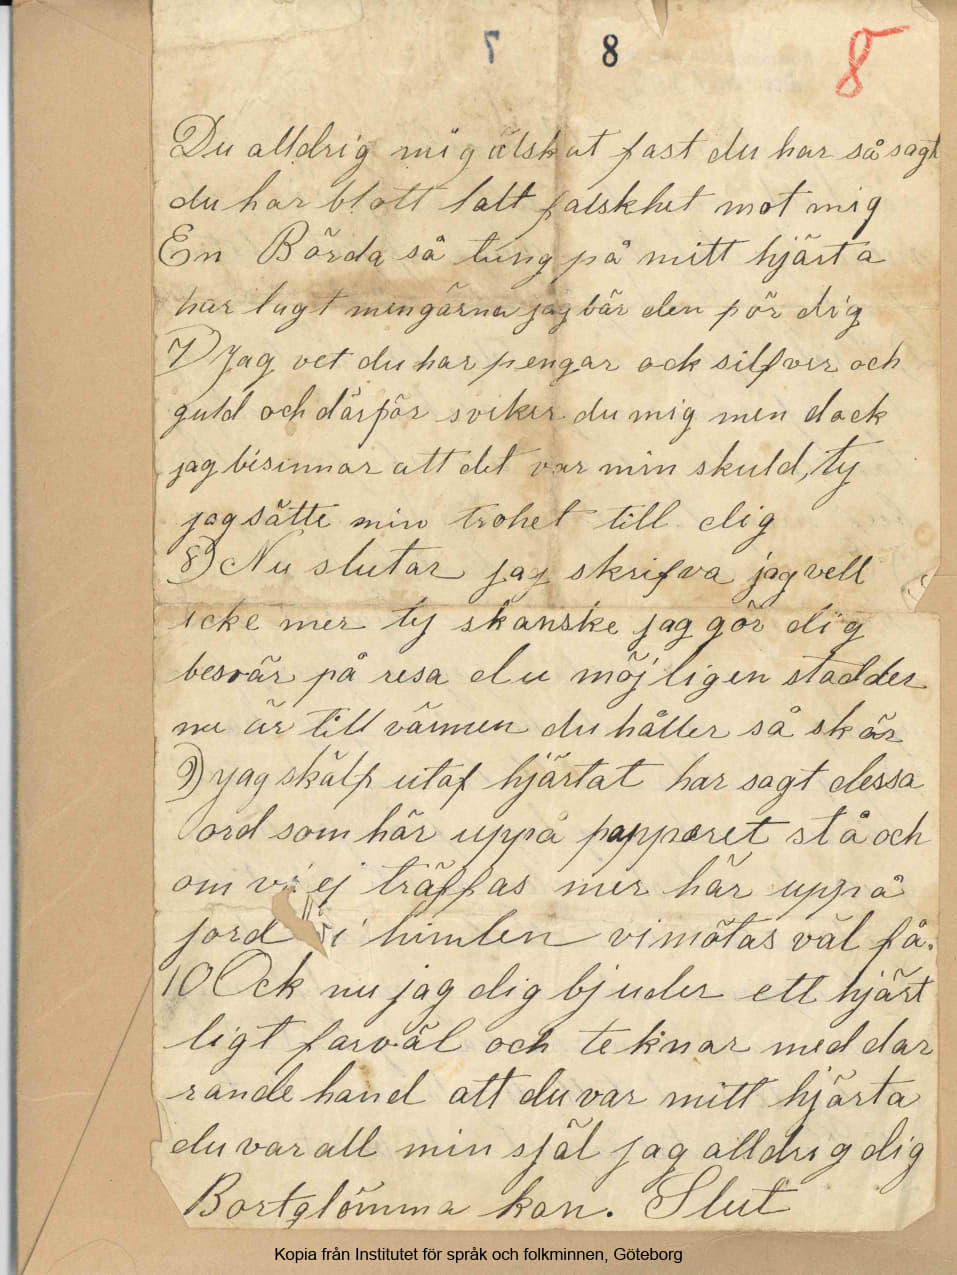 7 8 8
Du alldrig mig älskat fast du har så sagt
du har blott latt falskhet mot mig
En Börda så tung på mitt hjärta
har lagt mengärna jag bär den för dig
7) Jag vet du har pengar ock silfver och
guld och därför sviker du mig men dock
jag besinnar att det var min skuld, ty
jag sätte min trohet till dig
8) Nu slutar jag skrifva jag vell
icke mer ty skanske jag gör dig
besvär på resa du möjligen stadder
nu är till vännen du håller så skär
9) Jag skälf utaf hjärtat har sagt dessa
ord som här uppå papperet stå och
om vi ej träffas mer här uppå
jord i himlen vi mötas väl få.
10 Ock nu jag dig bjuder ett hjärt
ligt farväl och teknar med dar
rande hand att du var mitt hjärta
du var all min själ jag alldrig dig
Bortglömma kan. Slut
Kopia från Institutet för språk och folkminnen, Göteborg